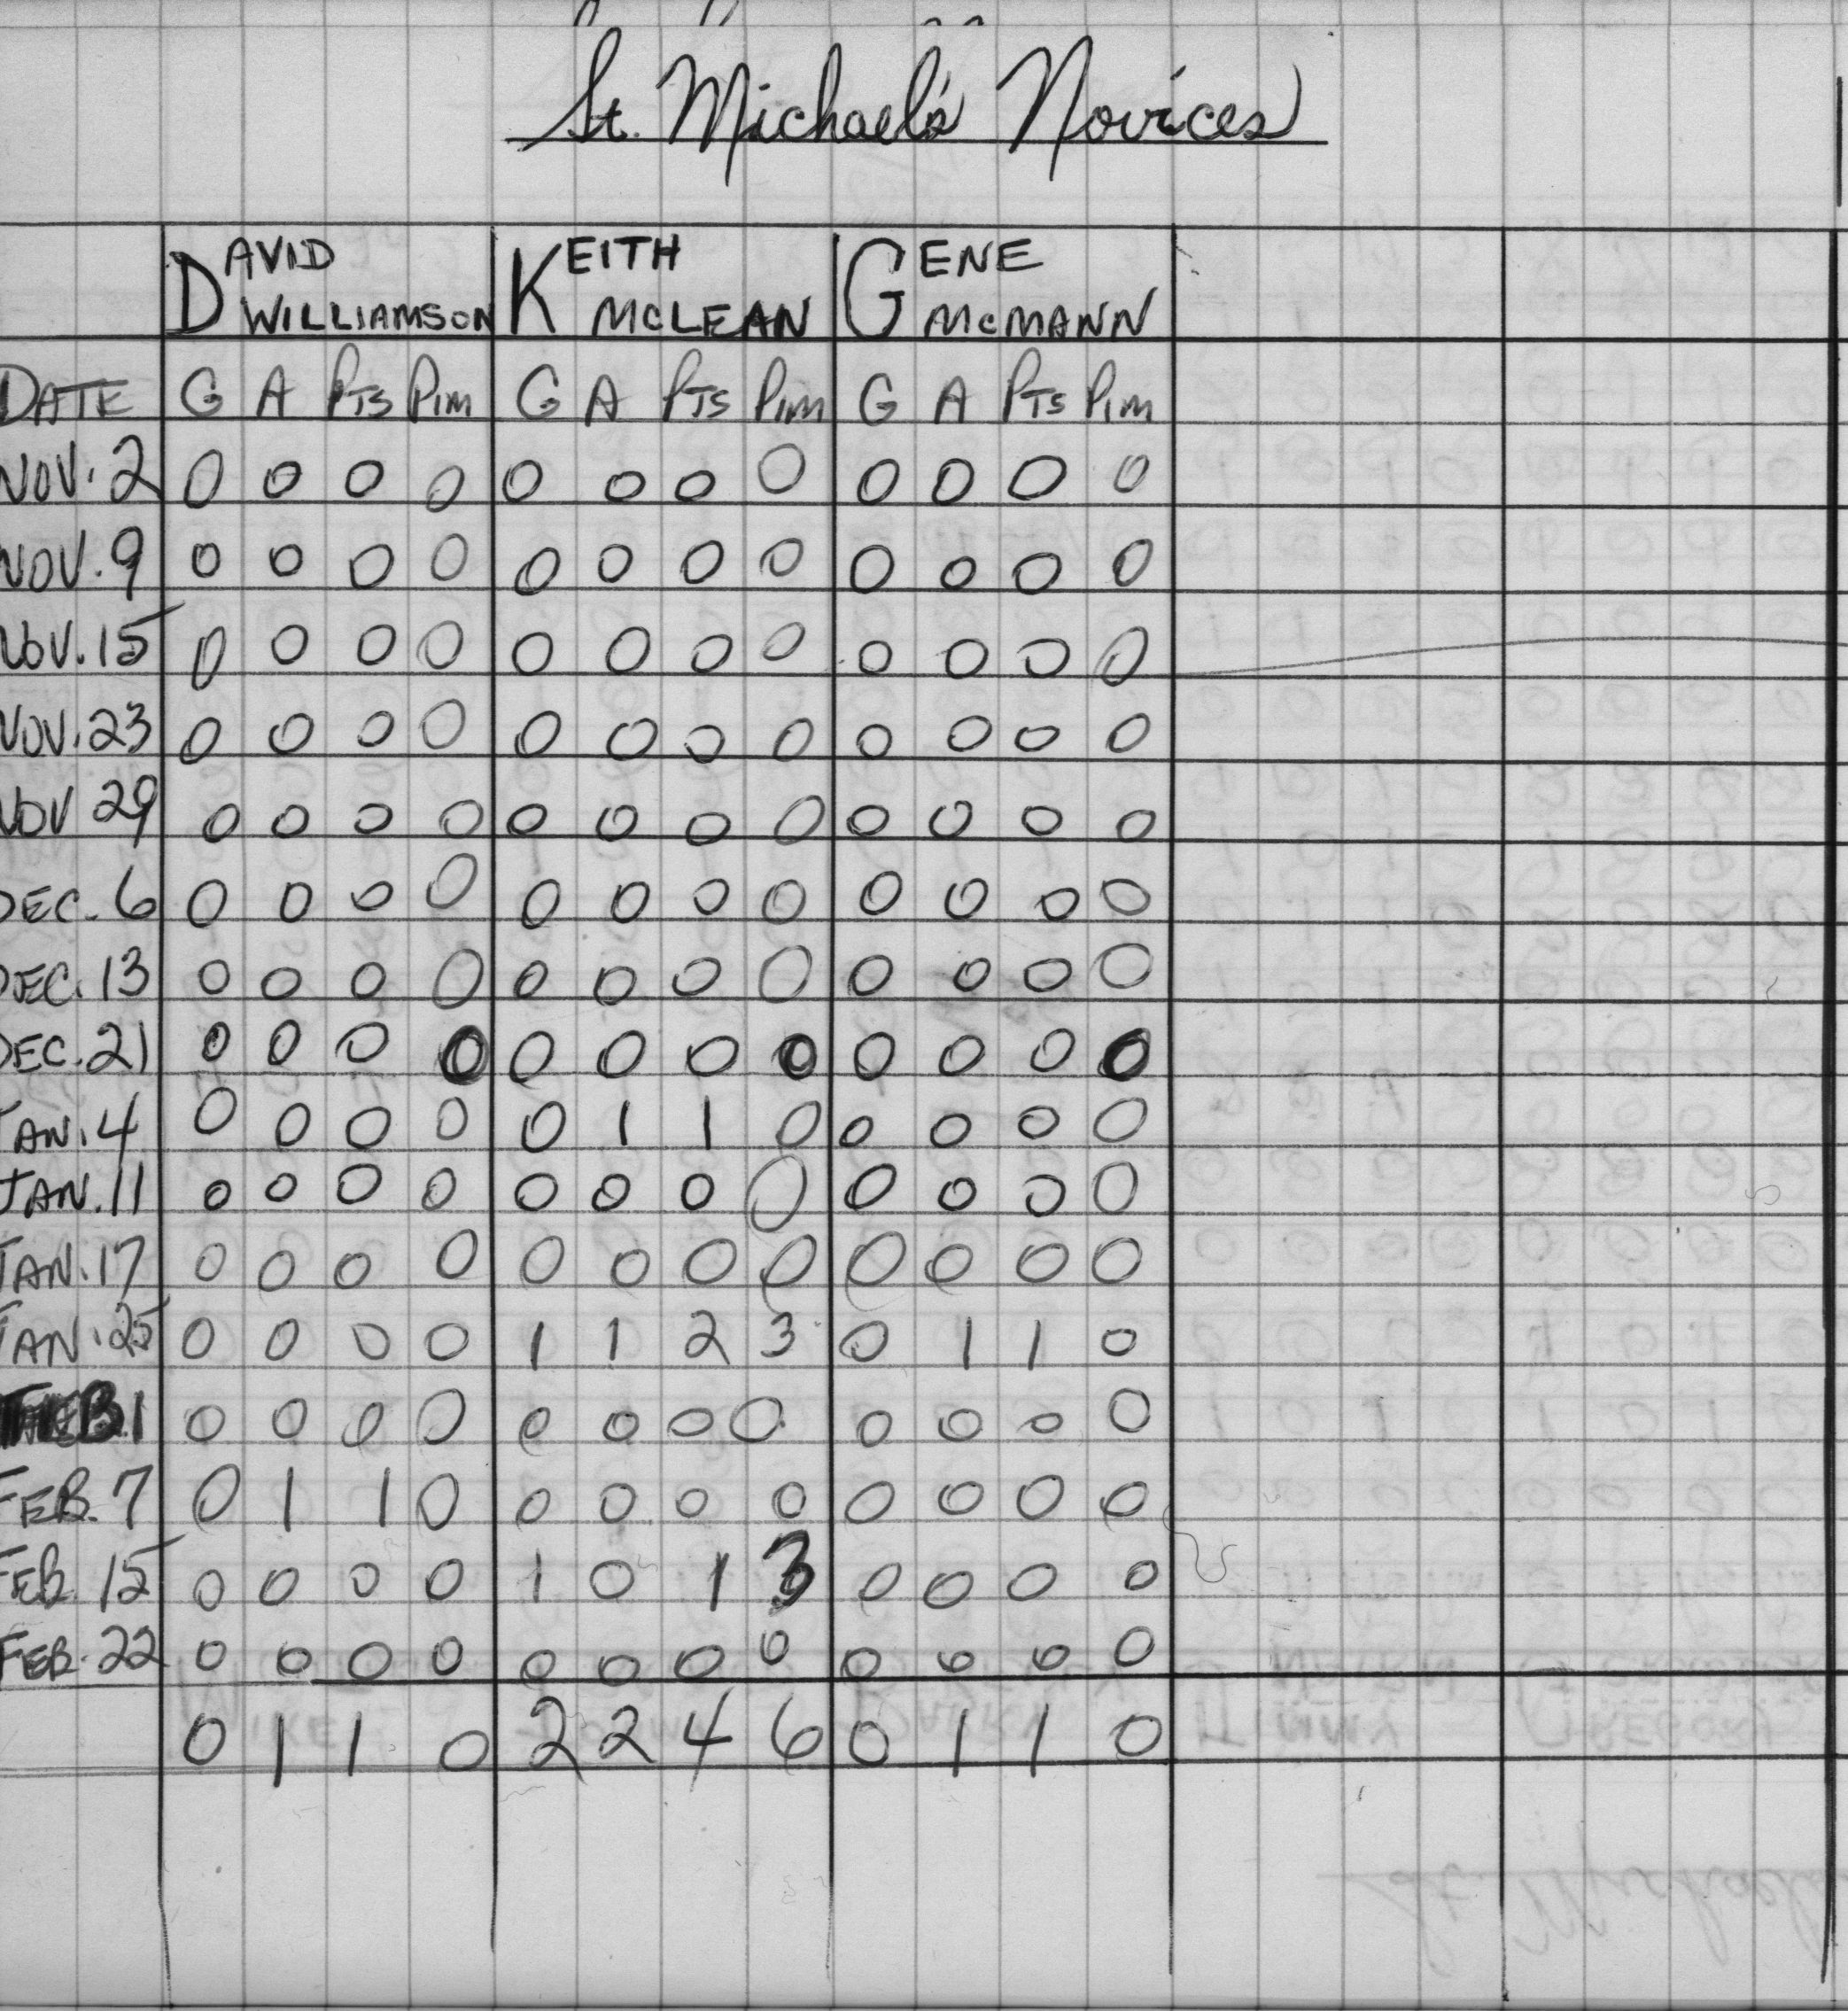 St. Michael's Novices
DAVID WILLIAMSON KEITH MCLEAN GENE MCMANN
DATE G A PTS PIM G A PTS PIM G A PTS PIM
NOV. 2 0 0 0 0 0 0 0 0 0 0 0 0
NOV. 9 0 0 0 0 0 0 0 0 0 0 0 0
NOV. 15 0 0 0 0 0 0 0 0 0 0 0 0
NOV. 23 0 0 0 0 0 0 0 0 0 0 0 0
NOV 29 0 0 0 0 0 0 0 0 0 0 0 0
DEC. 6 0 0 0 0 0 0 0 0 0 0 0 0
DEC. 13 0 0 0 0 0 0 0 0 0 0 0 0
DEC. 21 0 0 0 0 0 0 0 0 0 0 0 0
JAN. 4 0 0 0 0 0 1 1 0 0 0 0 0
JAN. 11 0 0 0 0 0 0 0 0 0 0 0 0
JAN. 17 0 0 0 0 0 0 0 0 0 0 0 0
JAN. 25 0 0 0 0 1 1 2 3 0 1 1 0
FEB 1 0 0 0 0 0 0 0 0 0 0 0 0
FEB. 7 0 1 1 0 0 0 0 0 0 0 0 0
FEB. 15 0 0 0 0 1 0 1 3 0 0 0 0
FEB. 22 0 0 0 0 0 0 0 0 0 0 0 0
0 1 1 0 2 2 4 6 0 1 1 0